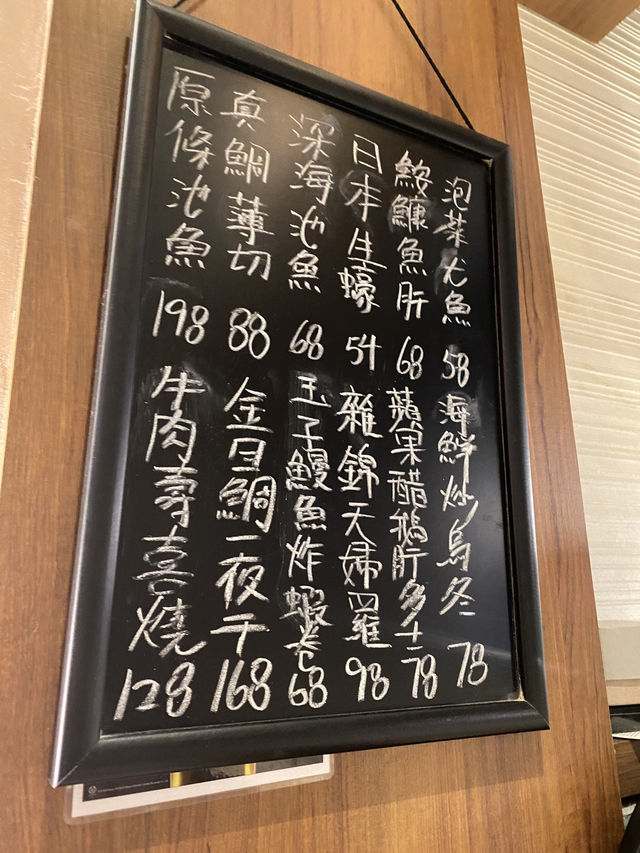 泡菜尤魚 58
鮟鱇魚肝 68
日本生蠔 54
深海池魚 68
真鯛薄切 88
原條池魚 198
海鮮炒烏冬 78
蘋果醋鵝肝多士 78
雜錦天婦羅 98
玉子鰻魚炸蝦卷 68
金目鯛一夜干 168
牛肉壽喜燒 128